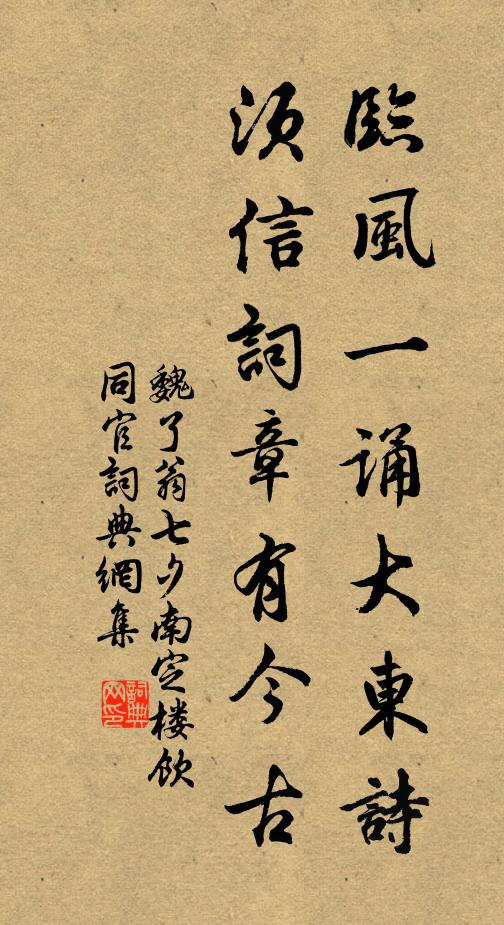 臨風一誦大東詩
須信詞章有今古
魏了翁七夕南定楼飲
同官詞典網集
詞典网印